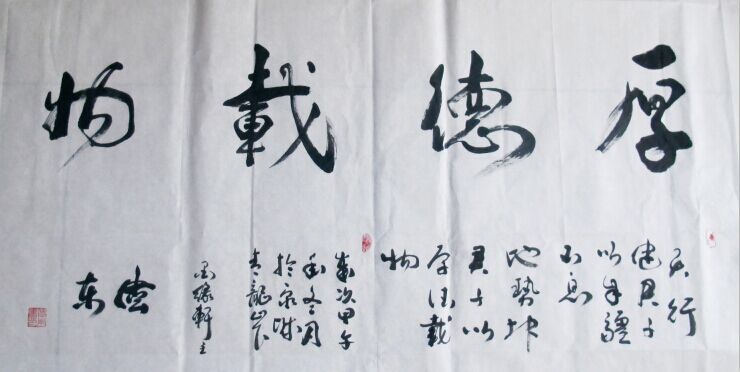 厚德載物
天行
健君子
以自疆
不息
地勢坤
君子以
厚德載
物
歲次甲午
年冬月
於城
青龍山下
墨緣軒主
东